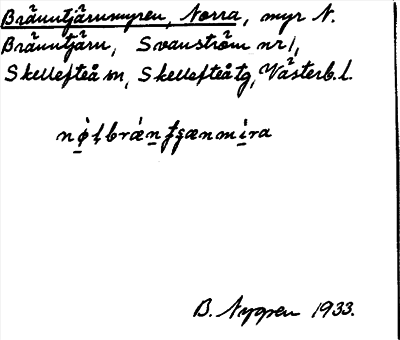 Bränntjärnmyren, Norra, myr N.
Bränntjärn, Svanström nr 1,
Skellefteå sn, Skellefteå tg, Västerb. l.
B. Nygren 1933.